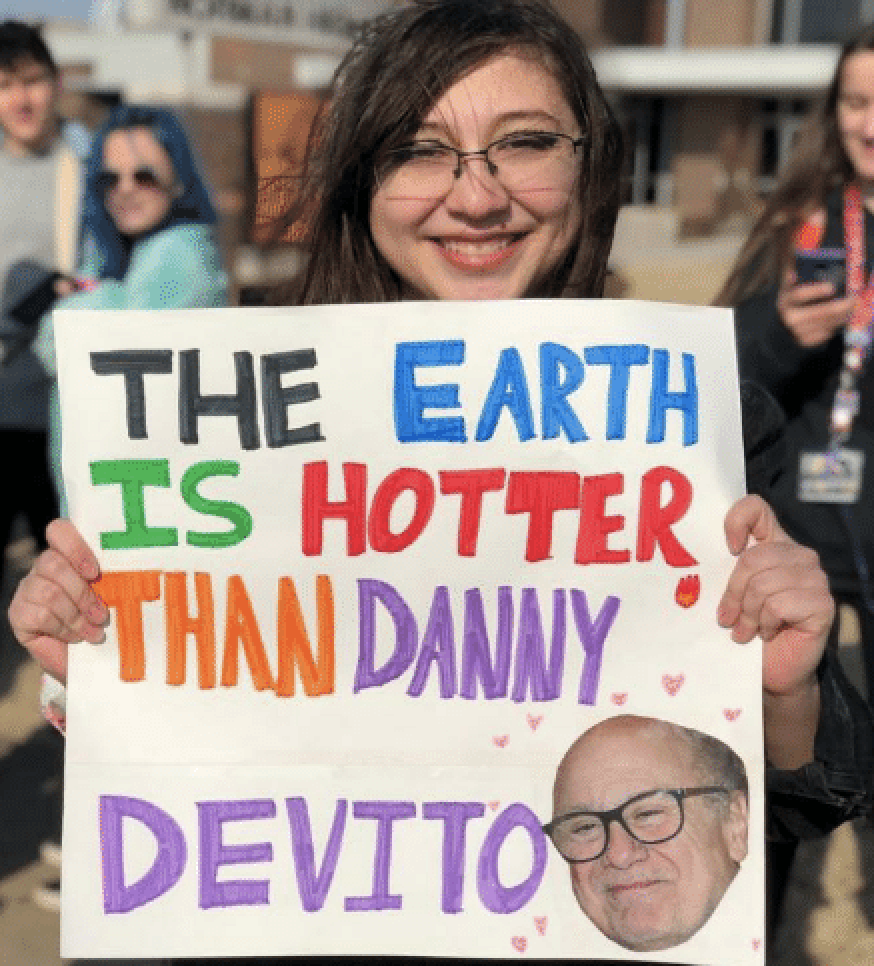 THE EARTH
IS HOTTER
THAN DANNY
DEVITO